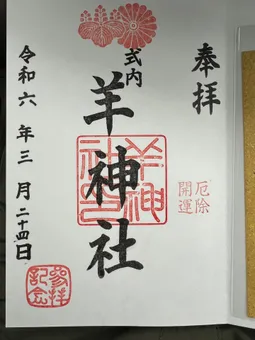 奉拝
厄除
開運
式内
羊神社
羊神社印
令和六年三月二十四日
参拝記念